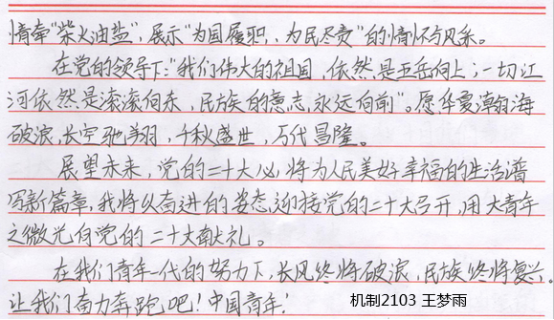 情牵“柴火油盐”,展示“为国履职、为民尽责”的情怀与风采。
在党的领导下:“我们伟大的祖国,依然是五岳向上;一切江
河依然是滚滚向东,民族的意志,永远向前”。愿华夏瀚海
破浪,长空驰翔,千秋盛世,万代昌隆。
展望未来,党的二十大必将为人民美好幸福的生活谱
写新篇章,我将以奋进的姿态迎接党的二十大召开,用大青年
之微光向党的二十大献礼。
在我们青年一代的努力下,长风终将破浪,民族终将复兴。
让我们奋力奔跑吧!中国青年!
机制2103 王梦雨